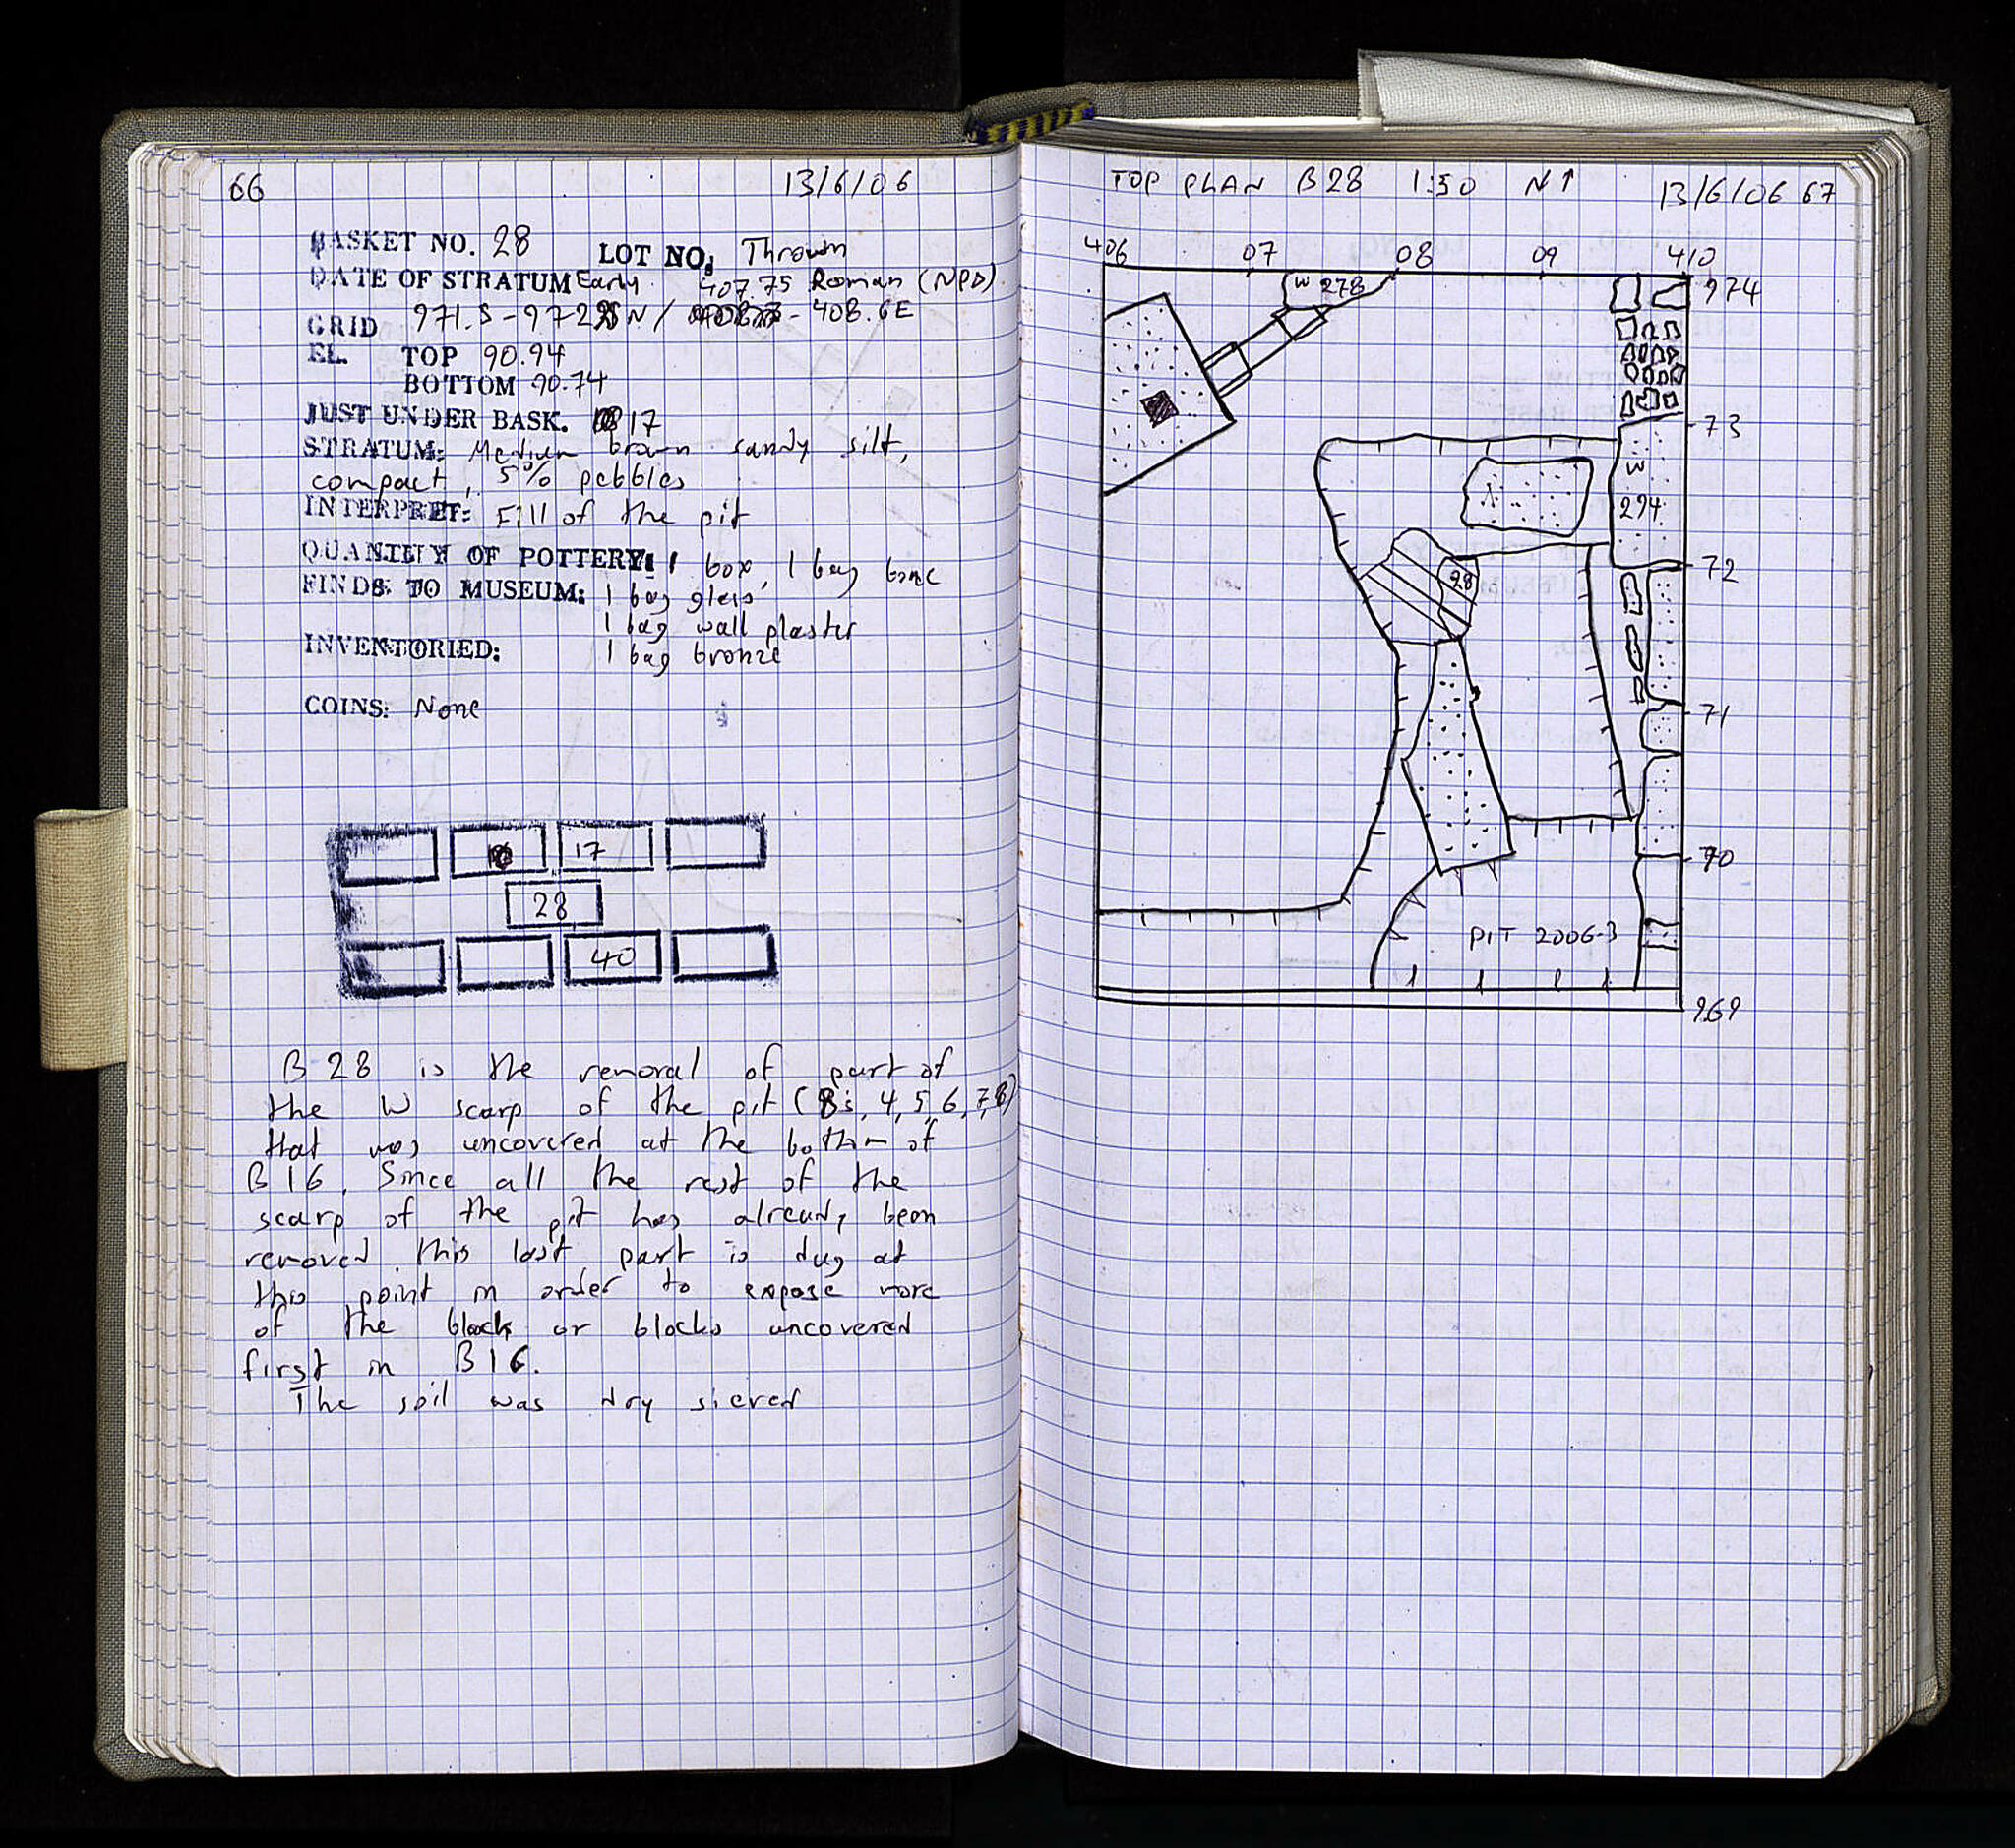 66 13/6/06
BASKET NO. 28 LOT NO: Thrown
DATE OF STRATUM Early Roman (NPD)
407.75
GRID 971.5-972 N / - 408.6E
EL. TOP 90.94
BOTTOM 90.74
JUST UNDER BASK. 17
STRATUM: Medium brown sandy silt,
compact, 5% pebbles
INTERPRET: Fill of the pit
QUANTITY OF POTTERY: 1 box, 1 bag bone
FINDS TO MUSEUM: 1 bag glass
1 bag wall plaster
INVENTORIED: 1 bag bronze
COINS: None
17
28
40
B 28 is the removal of part of
the W scarp of the pit (B's, 4, 5, 6, 7, 8)
that was uncovered at the bottom of
B 16. Since all the rest of the
scarp of the pit has already been
removed this last part is dug at
this point in order to expose more
of the block or blocks uncovered
first in B 16.
The soil was dry sieved
TOP PLAN B28 1:50 N↑ 13/6/06 67
406 07 08 09 410
W 278
974
73
W
294
72
28
71
70
PIT 2006-3
969